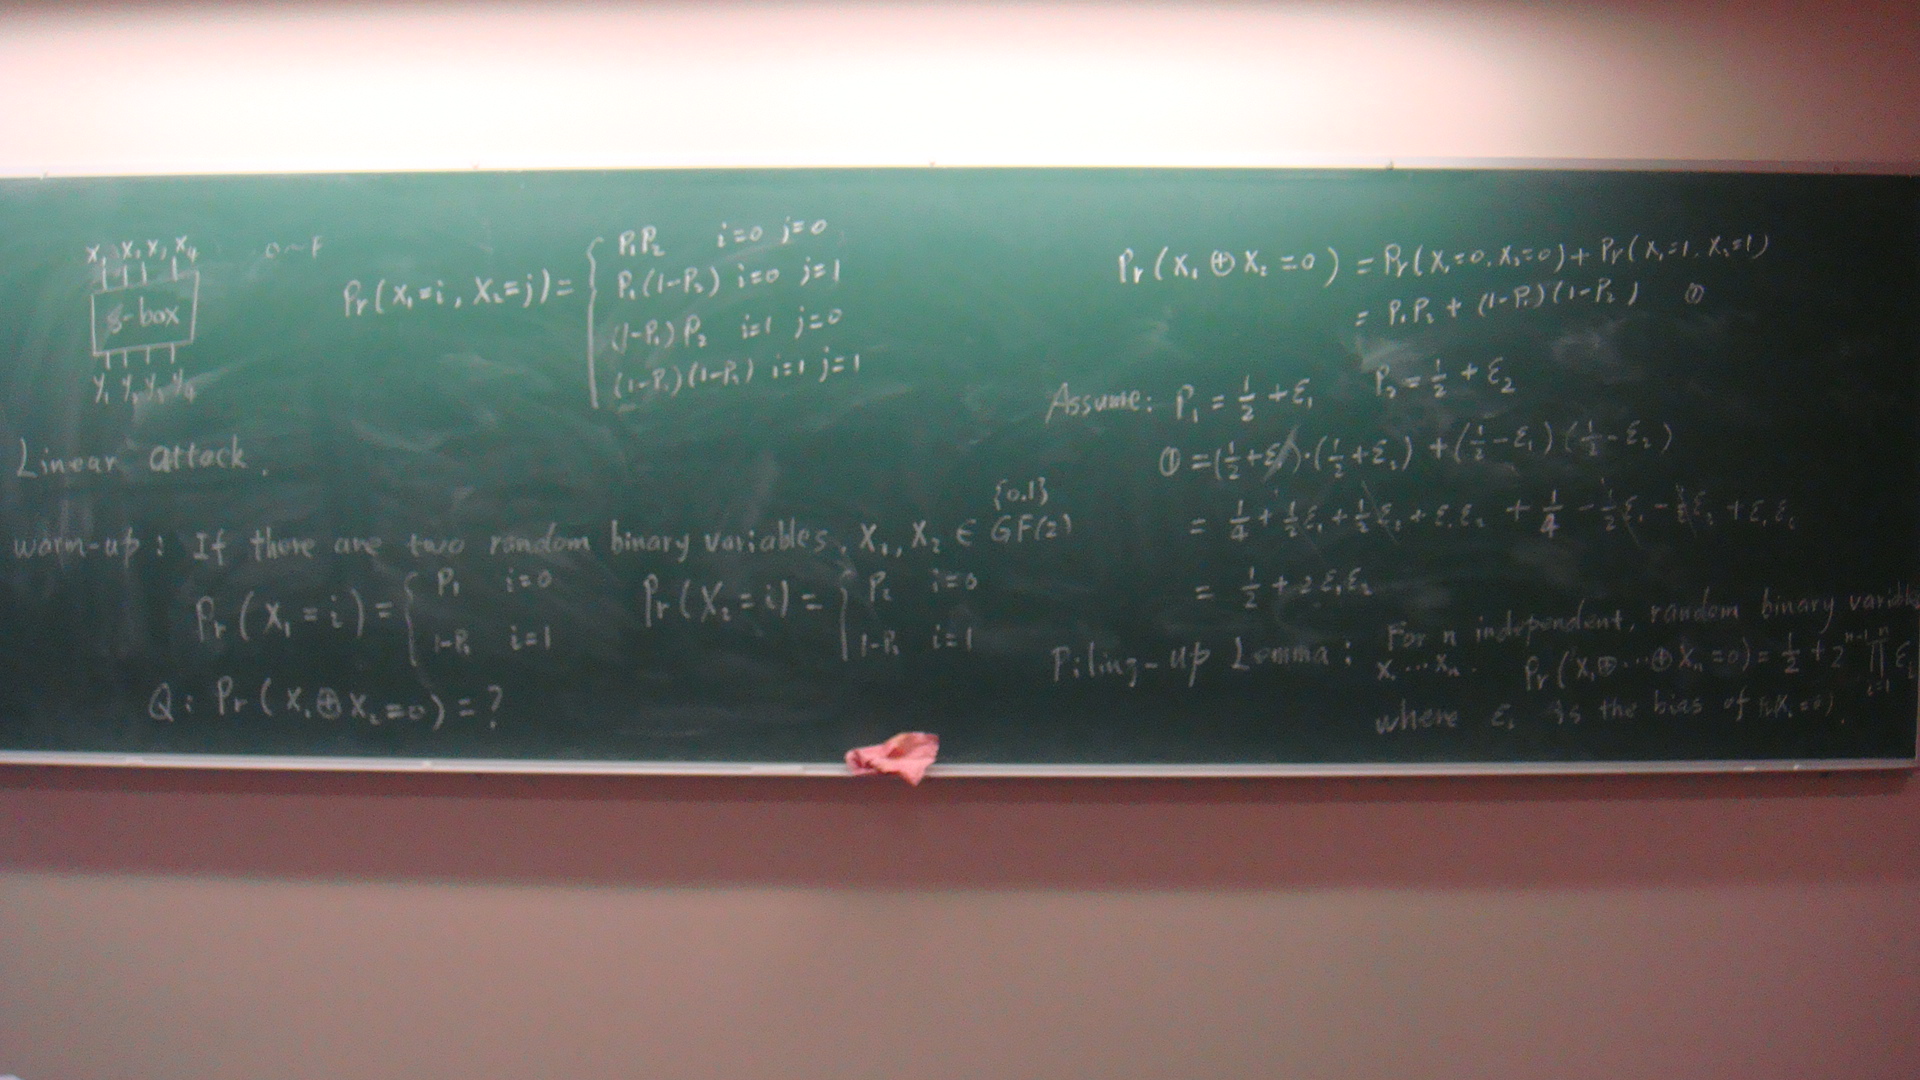 X₁ X₂ X₃ X₄ 0~F
S-box
Y₁ Y₂ Y₃ Y₄
Pr(X₁=i, X₂=j)= { P₁P₂ i=0 j=0
P₁(1-P₂) i=0 j=1
(1-P₁)P₂ i=1 j=0
(1-P₁)(1-P₂) i=1 j=1
Linear attack.
{0.1}
warm-up: If there are two random binary variables, X₁, X₂ ∈ GF(2)
Pr(X₁=i)= { P₁ i=0
1-P₁ i=1
Pr(X₂=i)= { P₂ i=0
1-P₂ i=1
Q: Pr(X₁⊕X₂=0)=?
Pr(X₁⊕X₂=0) = Pr(X₁=0, X₂=0)+Pr(X₁=1, X₂=1)
= P₁P₂ + (1-P₁)(1-P₂) ①
Assume: P₁ = 1/2 + ε₁ P₂ = 1/2 + ε₂
① = (1/2+ε₁)·(1/2+ε₂) + (1/2-ε₁)(1/2-ε₂)
= 1/4 + 1/2ε₁ + 1/2ε₂ + ε₁ε₂ + 1/4 - 1/2ε₁ - 1/2ε₂ + ε₁ε₂
= 1/2 + 2ε₁ε₂
Piling-up Lemma: For n independent, random binary variables
X₁...Xₙ. Pr(X₁⊕...⊕Xₙ=0) = 1/2 + 2ⁿ⁻¹ ∏ⁿᵢ₌₁ εᵢ
where εᵢ is the bias of Pr(Xᵢ=0).